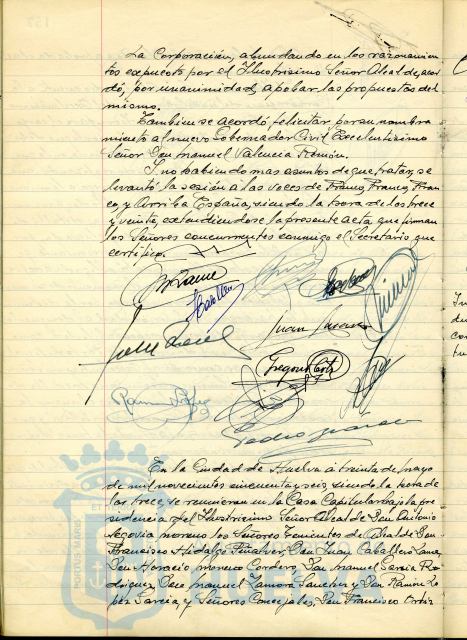 La Corporación, abundando en los razonamien
tos expuesto por el Ilustrisimo Señor Alcalde, acor
dó, por unanimidad, apobar las propuestas del
mismo.
Tambien se acordó felicitar por su nombra
miento al nuevo Gobernador Civil Excelentisimo
Señor Don Manuel Valencia Remón.
I no habiendo mas asuntos de que tratar, se
levantó la sesión a las voces de Franco, Franco, Fran
co y Arriba España, siendo la hora de las trece
y veinte, extendiendose la presente acta que firman
los Señores concurrentes conmigo el Secretario, que
certifico.
Juan
Gregorio
Ramon Lopez
Pedro
En la Ciudad de Huelva á treinta de mayo
de mil novecientos cincuenta y seis, siendo la hora de
las trece, se reunieron en la Casa Capitular bajo la pre
sidencia del Ilustrisimo Señor Alcalde Don Antonio
Segovia Moreno los Señores Tenientes de Alcalde Don
Francisco Hidalgo Peñalver, Don Juan Caballero
Don Horacio Moreno Cordero, Don Manuel Garcia Ro
driguez, Don Manuel Zamora Sanchez y Don Ramon Lo
pez Garcia y Señores Concejales, Don Francisco Ortiz
PORTUS MARIS
HUELVA